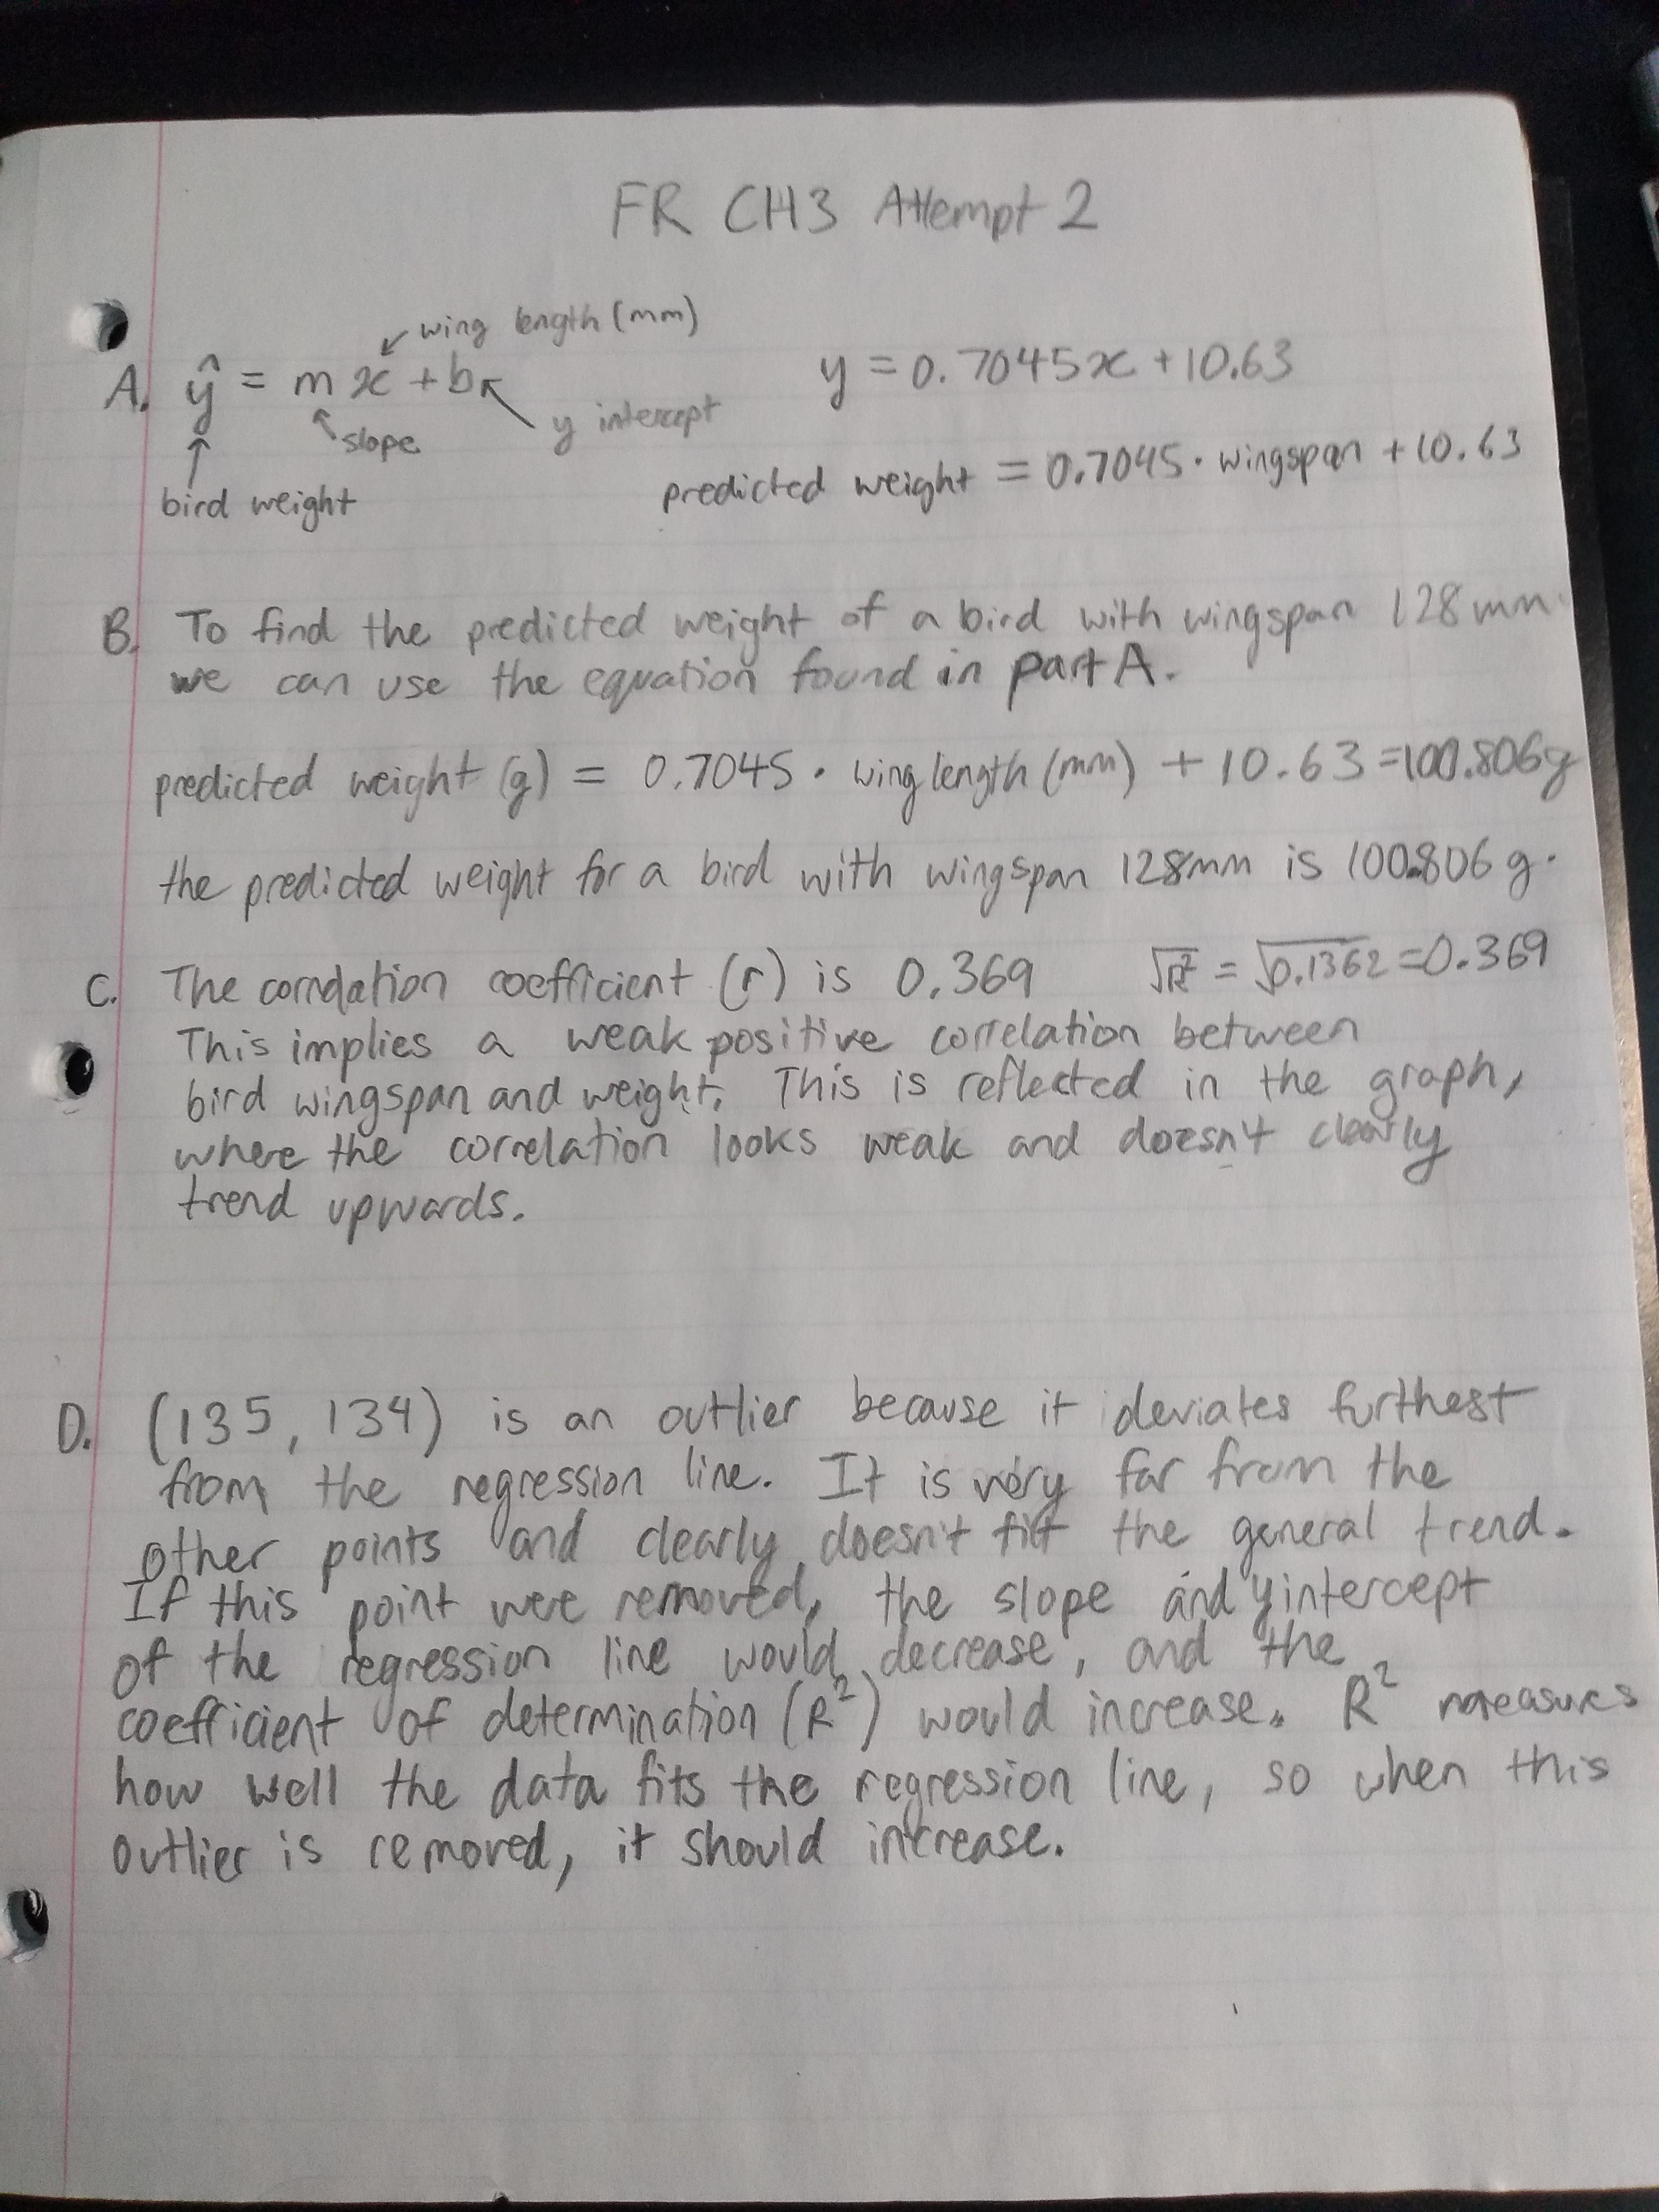 FR CH3 Attempt 2
wing length (mm)
A. ŷ = mx + b
y = 0.7045x + 10.63
slope
y intercept
bird weight
predicted weight = 0.7045 · wingspan + 10.63
B. To find the predicted weight of a bird with wingspan 128mm
we can use the equation found in part A.
predicted weight (g) = 0.7045 · wing length (mm) + 10.63 = 100.806g
the predicted weight for a bird with wingspan 128mm is 100.806 g.
C. The correlation coefficient (r) is 0.369 √R² = √0.1362 = 0.369
This implies a weak positive correlation between
bird wingspan and weight. This is reflected in the graph,
where the correlation looks weak and doesn't clearly
trend upwards.
D. (135, 134) is an outlier because it deviates furthest
from the regression line. It is very far from the
other points and clearly doesn't fit the general trend.
If this point were removed, the slope and y intercept
of the regression line would decrease, and the
coefficient of determination (R²) would increase. R² measures
how well the data fits the regression line, so when this
outlier is removed, it should increase.